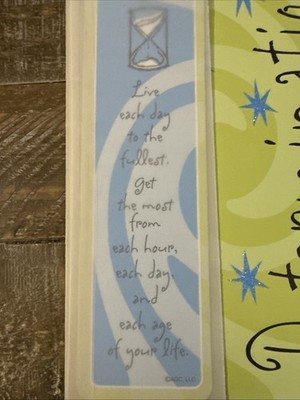 Live
each day
to the
fullest.
Get
the most
from
each hour,
each day,
and
each age
of your life